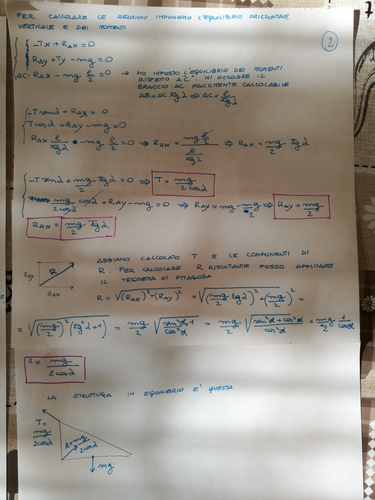 PER CALCOLARE LE REAZIONI IMPONIAMO L'EQUILIBRIO ORIZZONTALE,
VERTICALE E DEI MOMENTI
2
-Tx + RAX = 0
RAY + Ty - mg = 0
AC · RAX - mg l/2 = 0 → HO IMPOSTO L'EQUILIBRIO DEI MOMENTI
RISPETTO A "C". MI OCCORRE IL
BRACCIO AC FACILMENTE CALCOLABILE
-T senα + RAX = 0
T cosα + RAY - mg = 0
-T senα + mg/2 · tgα = 0 ⇒ T = mg/2cosα
mg/2cosα · cosα + RAY - mg = 0 ⇒ RAY = mg - mg/2 ⇒ RAY = mg/2
RAX = mg/2 · tgα
RAY
R
RAX
ABBIAMO CALCOLATO T E LE COMPONENTI DI
R. PER CALCOLARE R RISULTANTE POSSO APPLICARE
IL TEOREMA DI PITAGORA
R = √(RAX)² + (RAY)² = √(mg/2 tgα)² + (mg/2)² =
= √(mg/2)² (tg²α + 1) = mg/2 √sen²α/cos²α + 1 = mg/2 √sen²α + cos²α/cos²α = mg/2 · 1/cosα
R = mg/2cosα
LA STRUTTURA IN EQUILIBRIO E' QUESTA
T =
mg/2cosα
R = mg/2cosα
mg